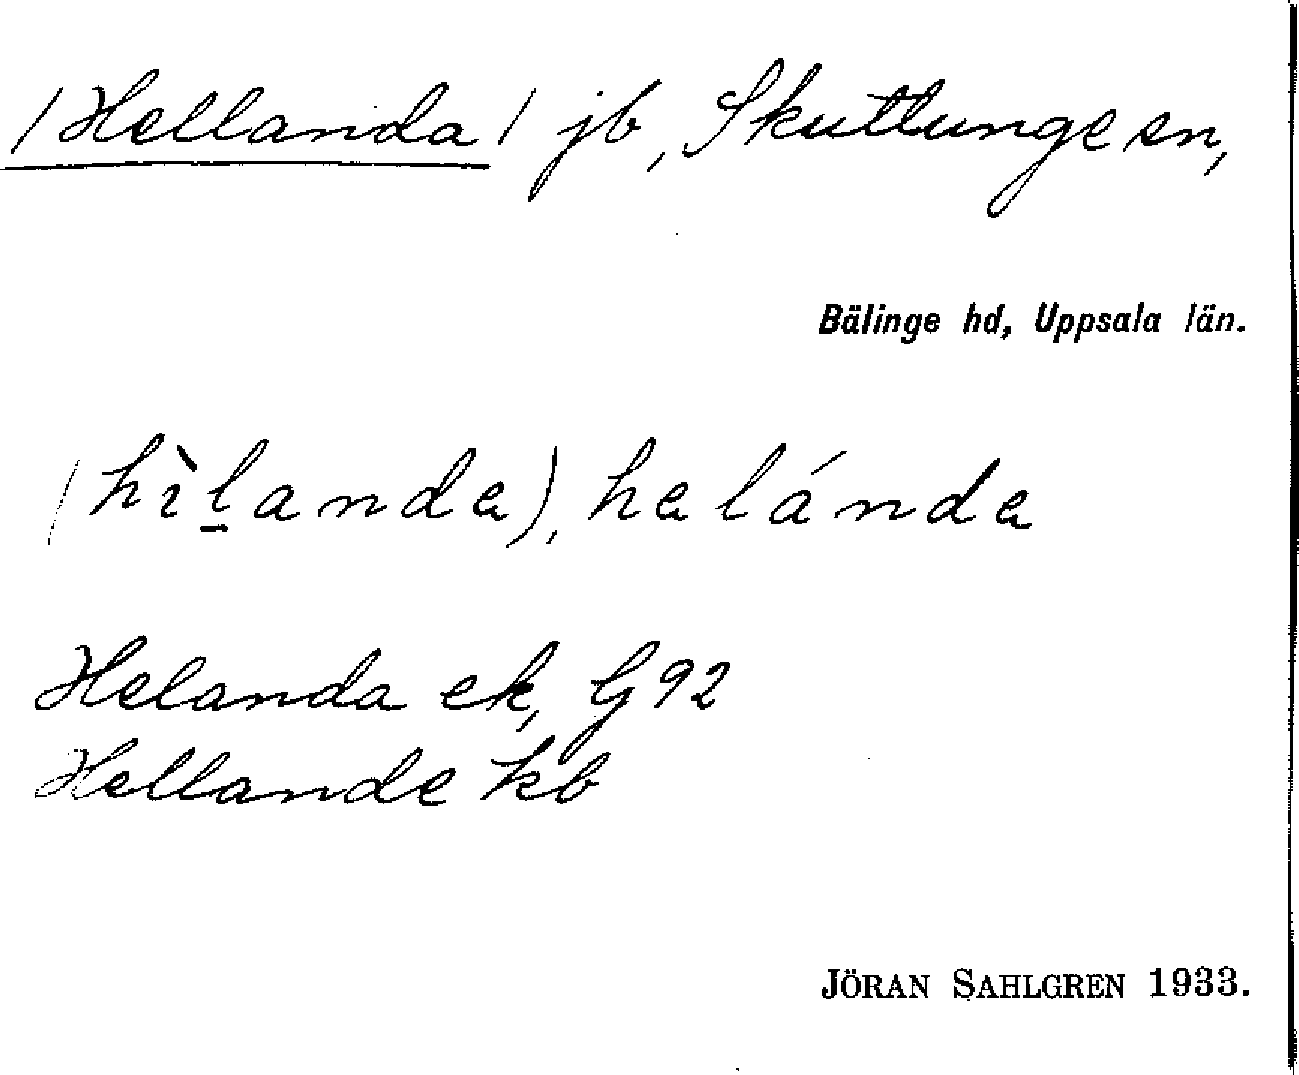 /Hellanda/ jb, Skuttunge sn,
Bälinge hd, Uppsala län.
(hìḻanda), helánda
Helanda ek, G 92
Hellande kb
JÖRAN SAHLGREN 1933.